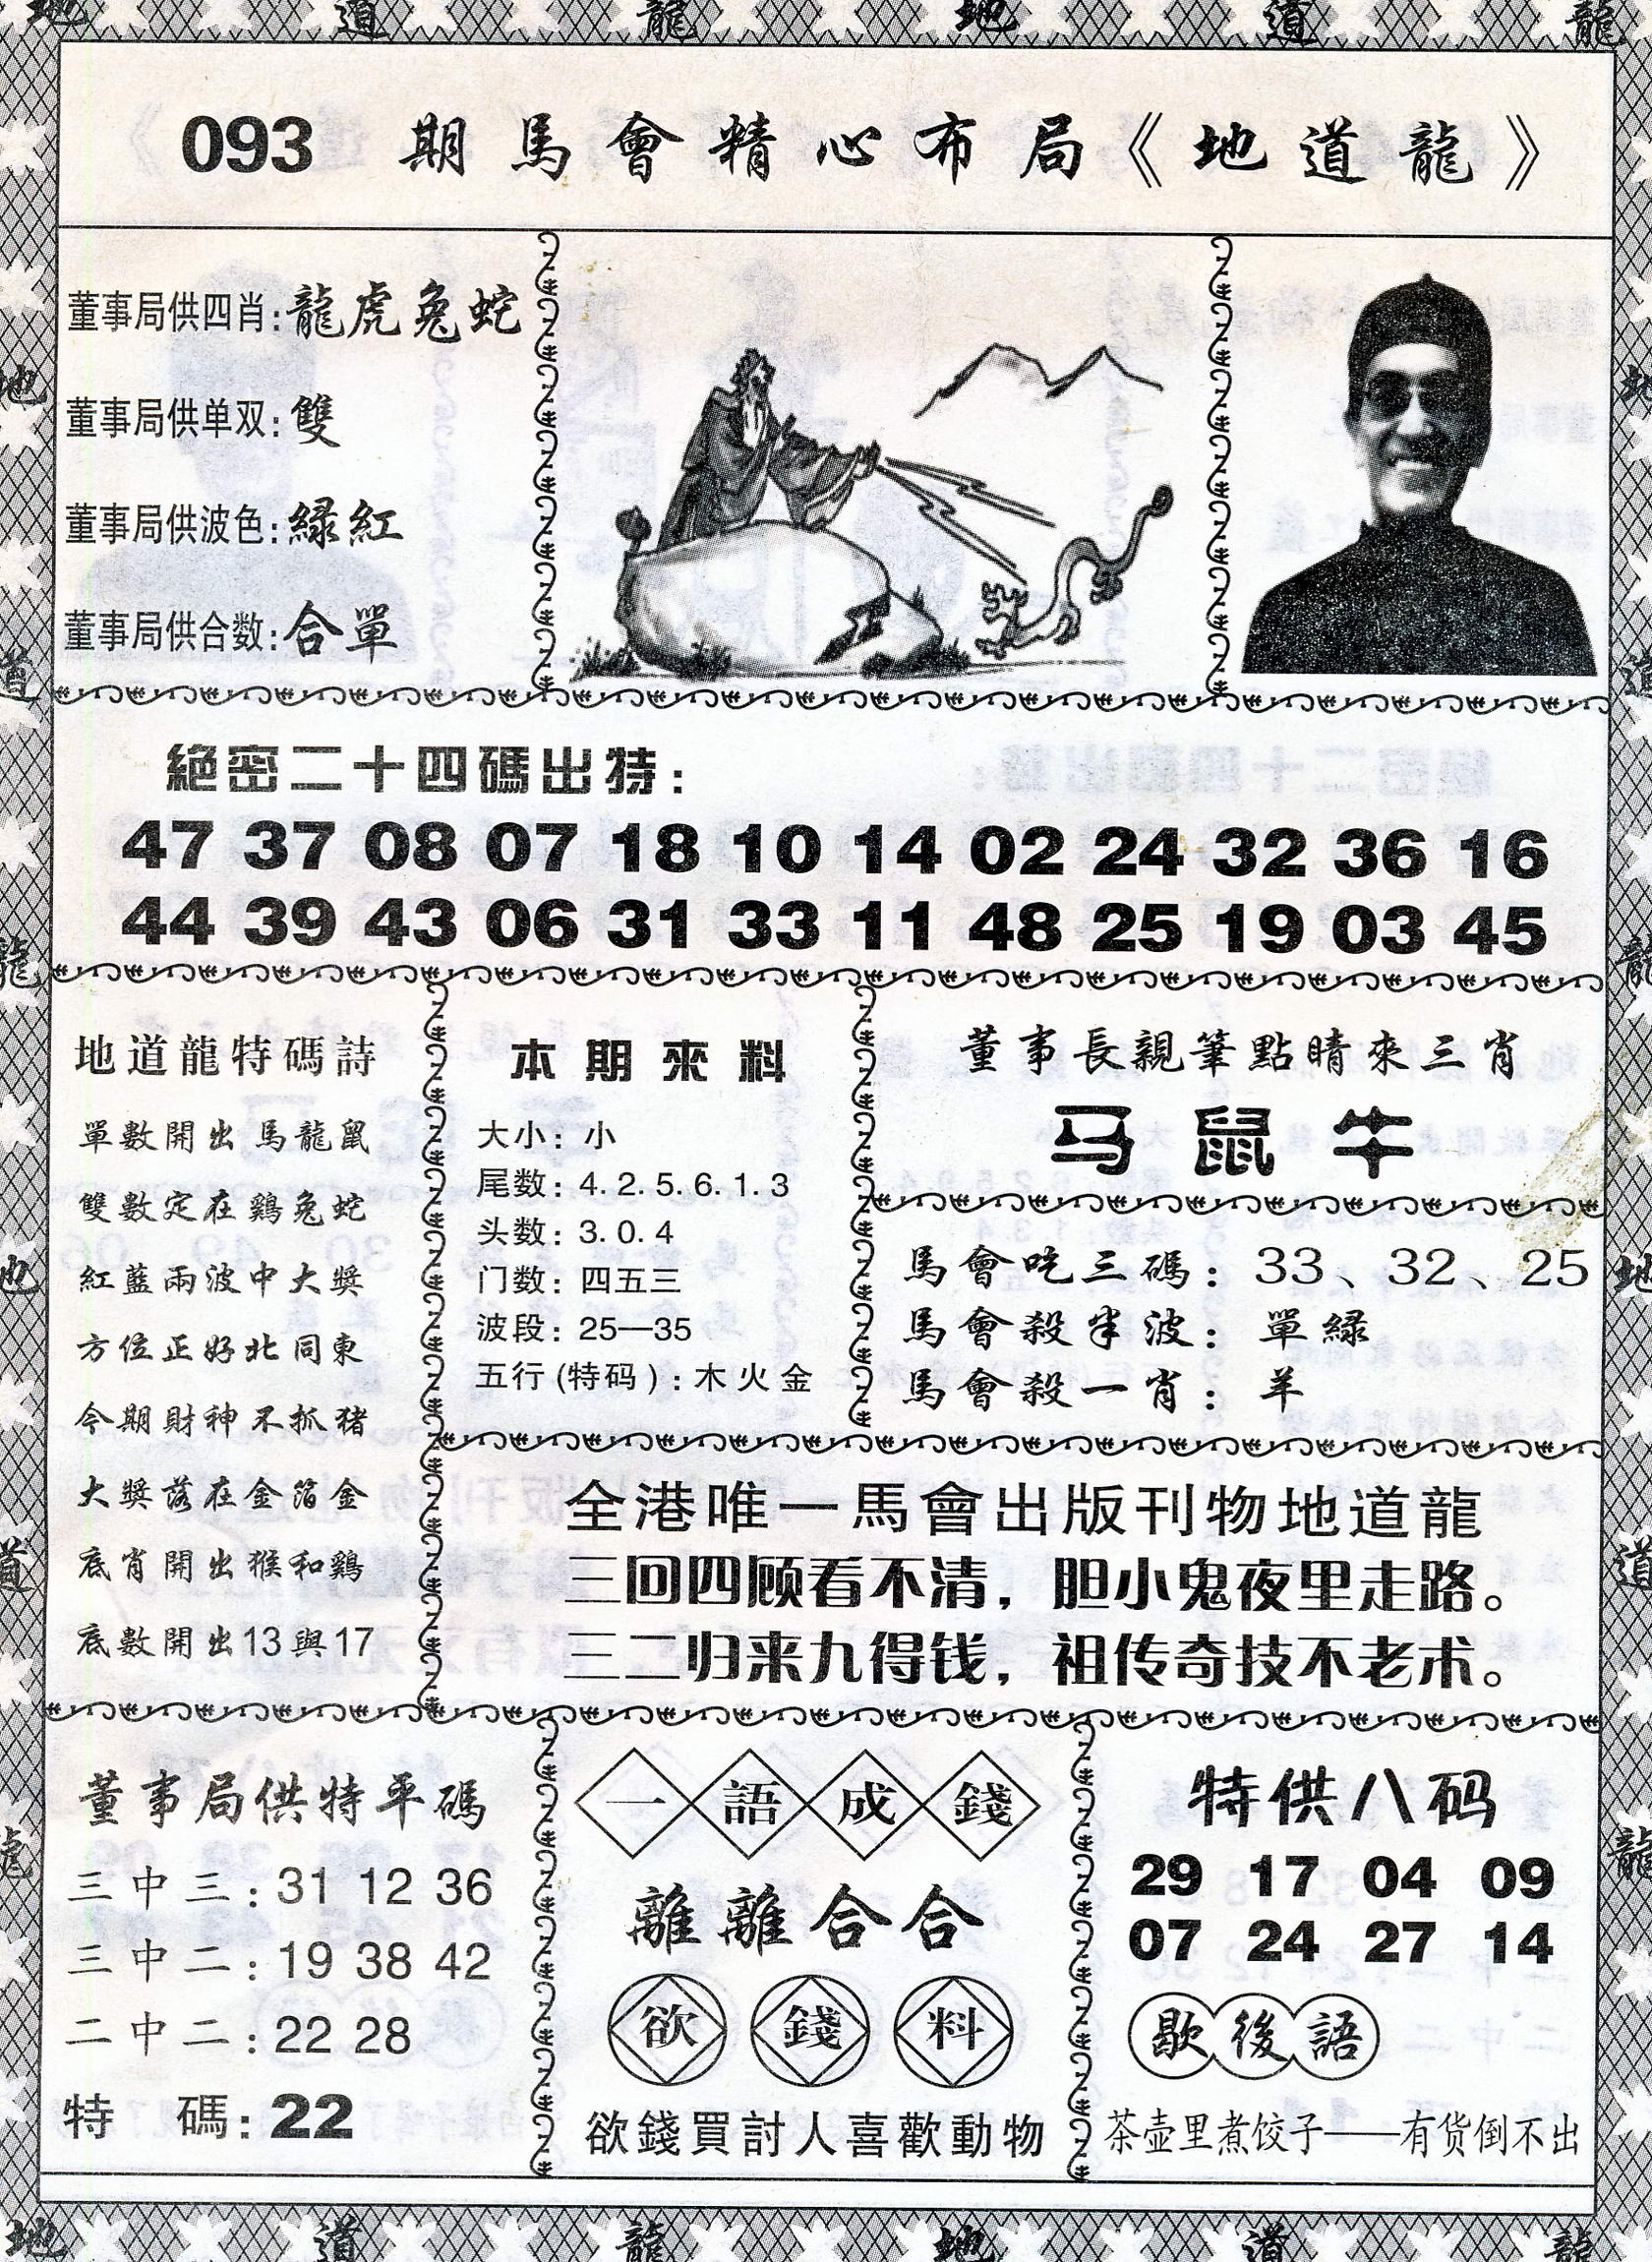 093 期馬會精心布局《地道龍》
董事局供四肖:龍虎兔蛇
董事局供单双:雙
董事局供波色:緑紅
董事局供合数:合單
絕密二十四碼出特:
47 37 08 07 18 10 14 02 24 32 36 16
44 39 43 06 31 33 11 48 25 19 03 45
地道龍特碼詩
單數開出馬龍鼠
雙數定在鷄兔蛇
紅藍兩波中大獎
方位正好北同東
今期財神不抓猪
大獎落在金箔金
底肖開出猴和鷄
底數開出13與17
本期來料
大小: 小
尾数: 4.2.5.6.1.3
头数: 3.0.4
门数: 四五三
波段: 25—35
五行(特码): 木火金
董事長親筆點睛來三肖
马鼠牛
馬會吃三碼: 33、32、25
馬會殺半波: 單緑
馬會殺一肖: 羊
全港唯一馬會出版刊物地道龍
三回四顾看不清，胆小鬼夜里走路。
三二归来九得钱，祖传奇技不老术。
董事局供特平碼
三中三: 31 12 36
三中二: 19 38 42
二中二: 22 28
特 碼: 22
一語成錢
離離合合
欲錢料
欲錢買討人喜歡動物
特供八码
29 17 04 09
07 24 27 14
歇後語
茶壶里煮饺子——有货倒不出
地 道 龍 地 道 龍
地 道 龍 地 道 龍
地 道 龍 地 道 龍
地 道 龍 地 道 龍